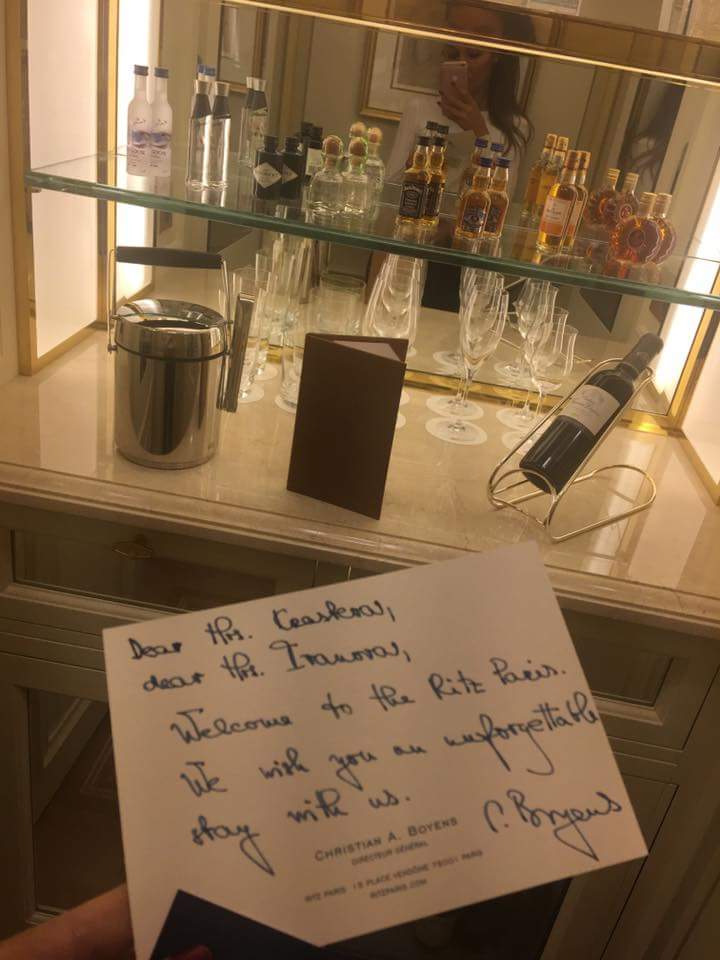 JACK DANIEL'S
Dear Mrs.
dear Mrs. Ivanova,
Welcome to the Ritz Paris.
We wish you an unforgettable
stay with us.
C. Boyens
CHRISTIAN A. BOYENS
DIRECTEUR GÉNÉRAL
RITZ PARIS 15 PLACE VENDÔME 75001 PARIS
RITZPARIS.COM